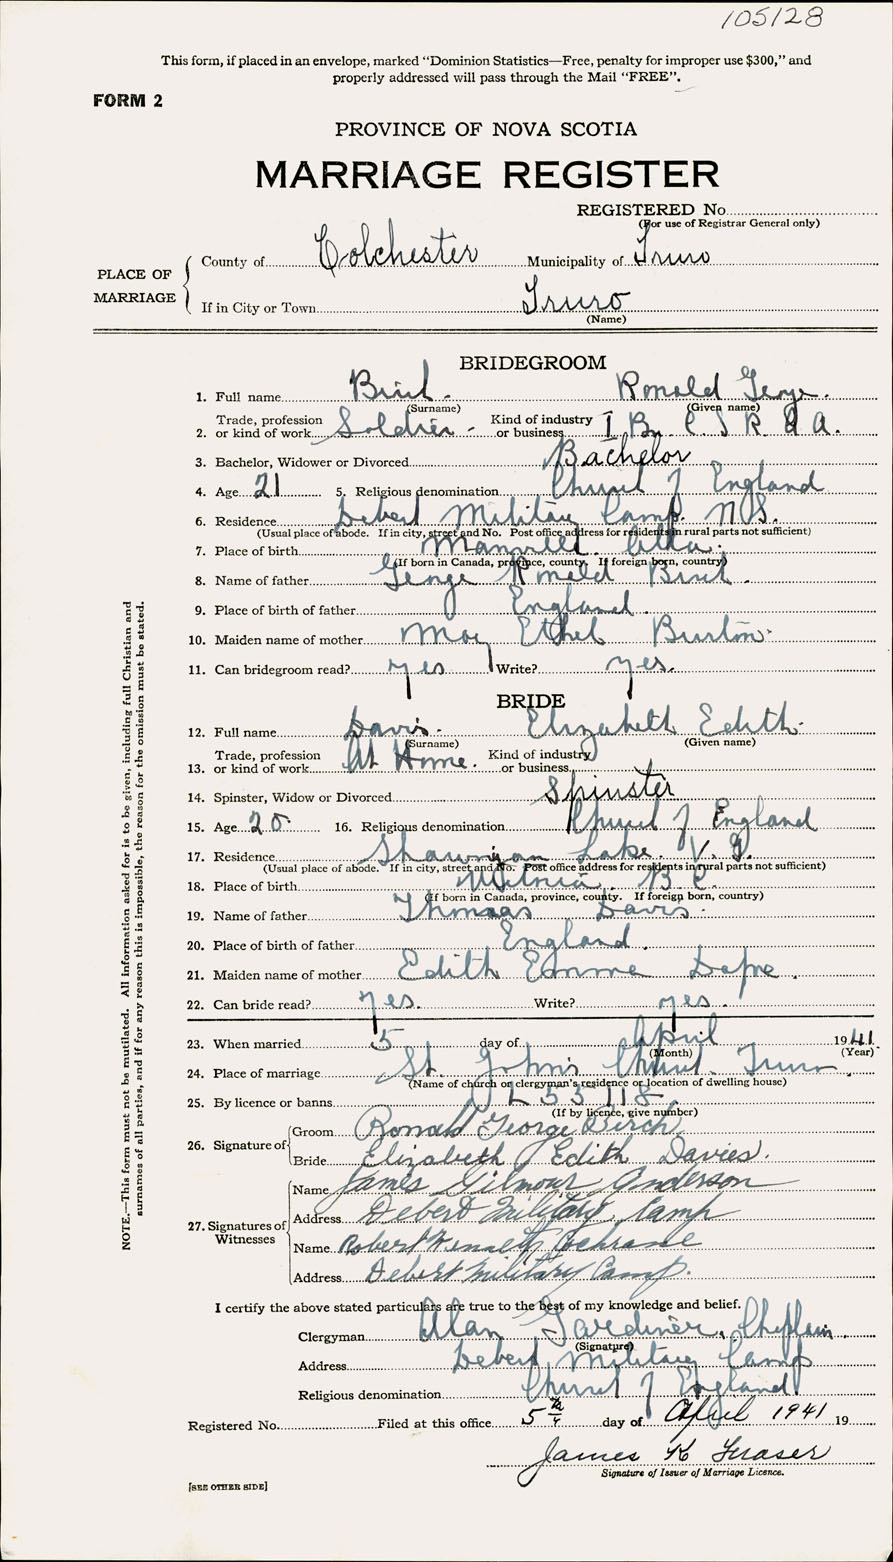 105128
This form, if placed in an envelope, marked "Dominion Statistics—Free, penalty for improper use $300," and
properly addressed will pass through the Mail "FREE".
FORM 2
PROVINCE OF NOVA SCOTIA
MARRIAGE REGISTER
REGISTERED No.
(For use of Registrar General only)
PLACE OF MARRIAGE
County of Colchester Municipality of Truro
If in City or Town Truro
(Name)
BRIDEGROOM
1. Full name Birch. Ronald George.
(Surname) (Given name)
2. Trade, profession or kind of work Soldier. Kind of industry or business I Bn. C. S. R. A.
3. Bachelor, Widower or Divorced Bachelor
4. Age 21 5. Religious denomination Church of England
6. Residence Debert Military Camp. N.S.
(Usual place of abode. If in city, street and No. Post office address for residents in rural parts not sufficient)
7. Place of birth Mannville. Alta.
(If born in Canada, province, county. If foreign born, country)
8. Name of father George Ronald Birch.
9. Place of birth of father England.
10. Maiden name of mother May Ethel Burton.
11. Can bridegroom read? yes Write? yes.
BRIDE
12. Full name Davis. Elizabeth Edith.
(Surname) (Given name)
13. Trade, profession or kind of work At Home. Kind of industry or business
14. Spinster, Widow or Divorced Spinster
15. Age 20 16. Religious denomination Church of England
17. Residence Shawnigan Lake. V. I.
(Usual place of abode. If in city, street and No. Post office address for residents in rural parts not sufficient)
18. Place of birth Victoria. B.C.
(If born in Canada, province, county. If foreign born, country)
19. Name of father Thomas Davis.
20. Place of birth of father England.
21. Maiden name of mother Edith Emma
22. Can bride read? yes. Write? yes.
23. When married 5 day of April 1941
(Month) (Year)
24. Place of marriage St. John's Church. Truro.
(Name of church or clergyman's residence or location of dwelling house)
25. By licence or banns L 55118
(If by licence, give number)
26. Signature of Groom Ronald George Birch
Bride Elizabeth Edith Davies.
27. Signatures of Witnesses
Name James Gilmour Anderson
Address Debert Military Camp
Name Robert Kenneth Cochrane
Address Debert Military Camp.
I certify the above stated particulars are true to the best of my knowledge and belief.
Clergyman Alan Gardiner, Chaplain.
(Signature)
Address Debert Military Camp
Religious denomination Church of England
Registered No. Filed at this office 5th day of April 1941 19
James K Fraser
Signature of Issuer of Marriage Licence.
[SEE OTHER SIDE]
NOTE.—This form must not be mutilated. All information asked for is to be given, including full Christian and
surnames of all parties, and if for any reason this is impossible, the reason for the omission must be stated.